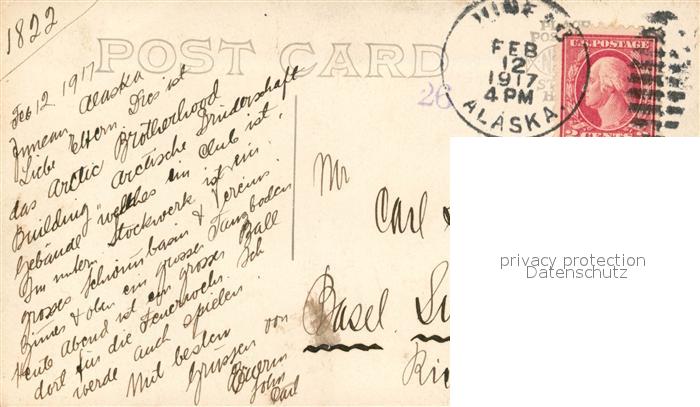 1822
POST CARD
Feb 12, 1917
Juneau Alaska
Liebe Eltern. Dies ist
das Arctic Brotherhood
Building "Arctische Brüderschaft
Gebäude" welches ein Club ist.
Im untern Stockwerk ist ein
grosses Schwimbasin & Vereins
Zimer & oben ein grosser Tanzboden
Heute Abend ist ein grosser Ball
dort für die Feuerwehr. Ich
werde auch spielen
Mit besten
Grüssen von
Euerm
Sohn
Carl
JUNEAU
FEB
12
1917
4 PM
ALASKA.
U.S. POSTAGE
2 CENTS 2
26
Mr
Carl
Basel.
privacy protection
Datenschutz